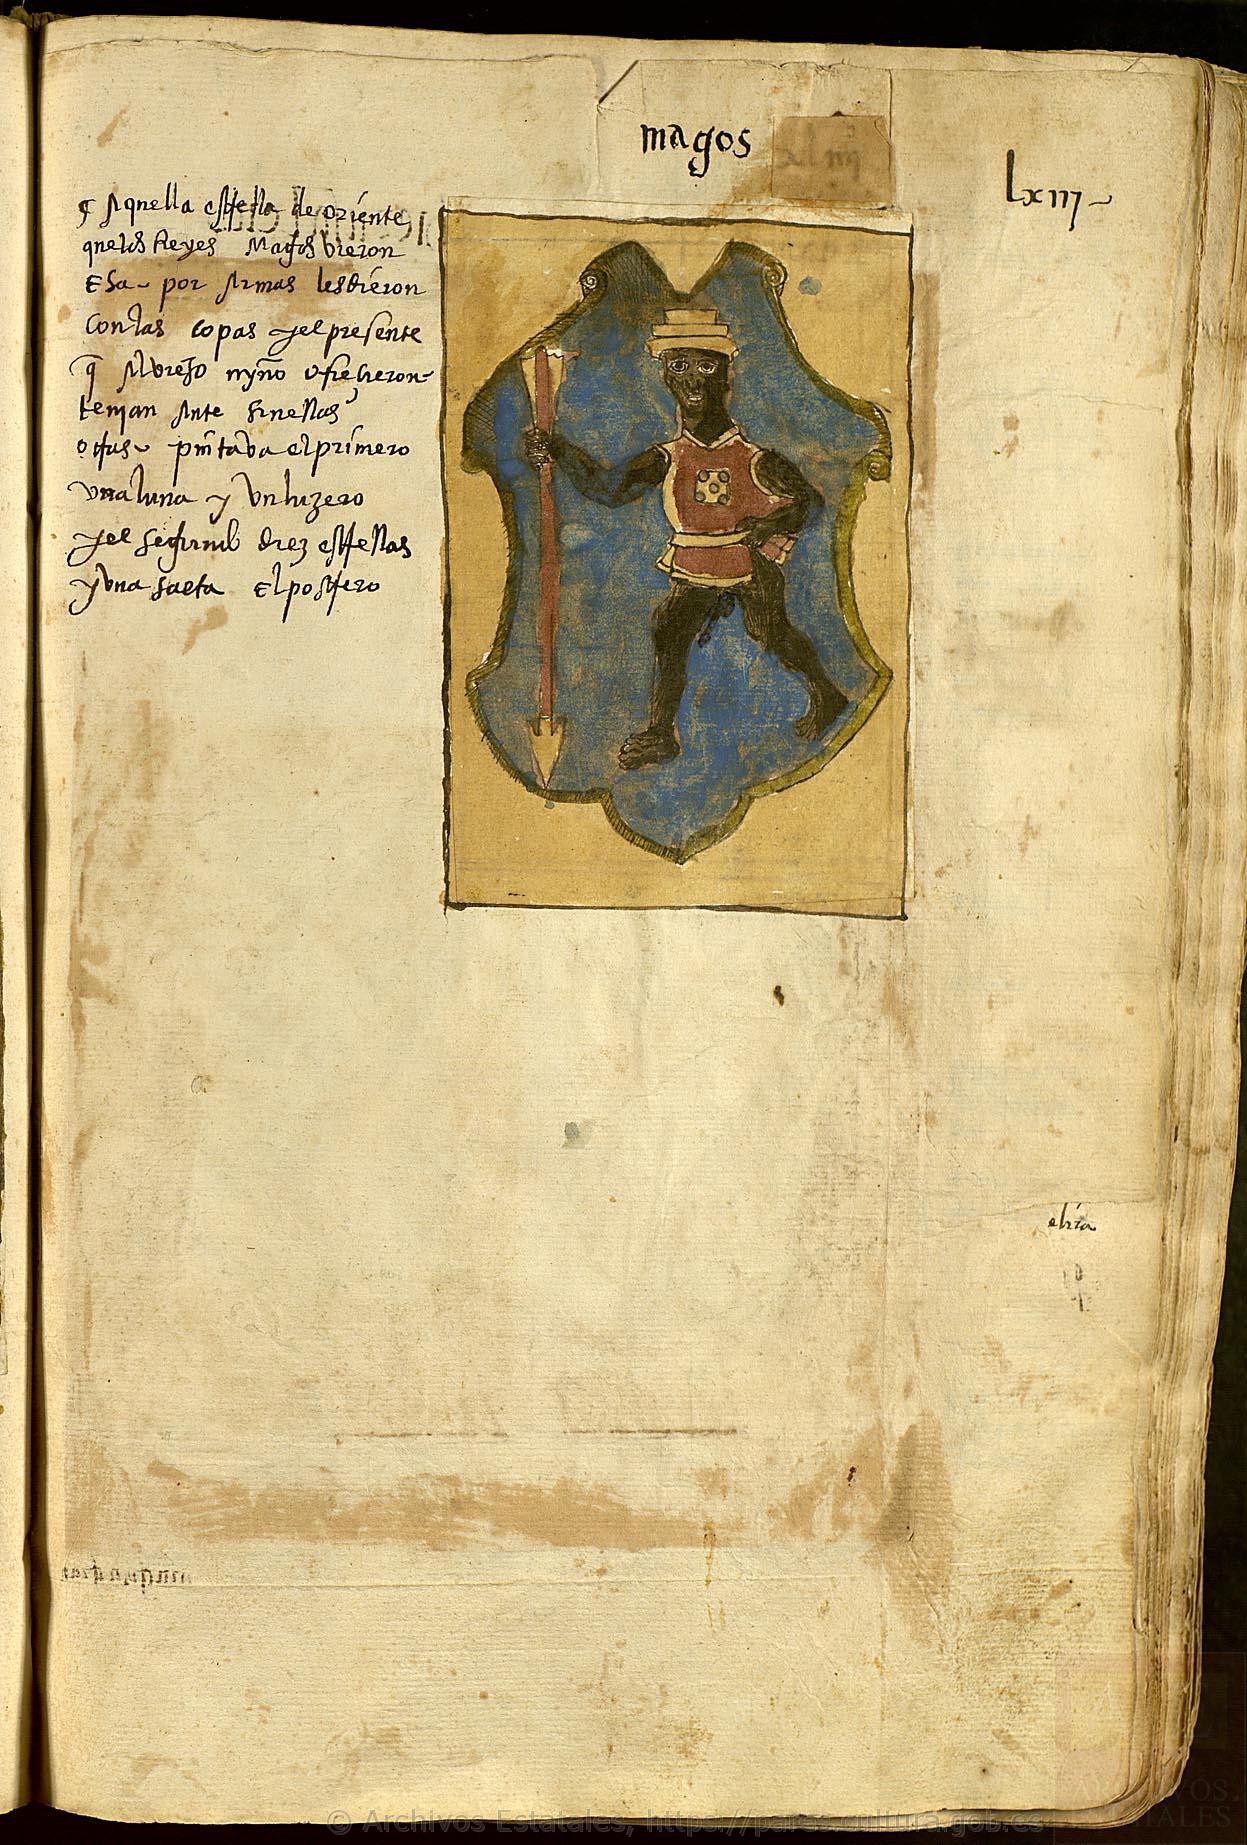 magos
lxiij
Aquella estrella de oriente
que los Reyes Magos vieron
Esa por Armas les dieron
Con las copas y el presente
q̃ Al viejo nyño ofrecieron
tenian Ante
otras pintava el primero
vna luna y vn luzero
y el segundo diez estrellas
y vna saeta El postrero
© Archivos Estatales, https://pares.cultura.gob.es